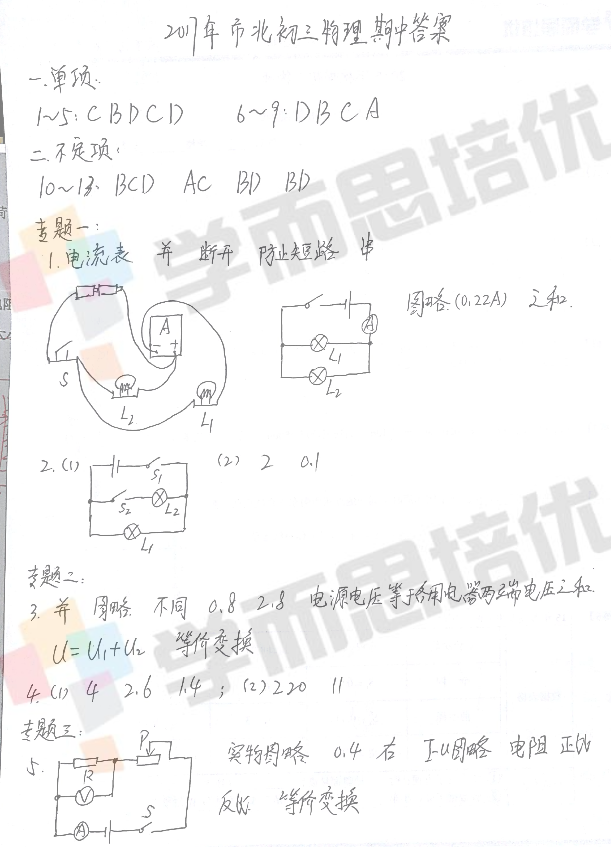 2017年市北初三物理期中答案
一.单项:
1~5: C B D C D 6~9: D B C A
二.不定项:
10~13. BCD AC BD BD
专题一:
1. 电流表 并 断开 防止短路 串
图略(0.22A) 之和.
A
A
S
L2
L1
L1
L2
2.(1)
(2) 2 0.1
S1
S2
L2
L1
专题二:
3. 并 图略 不同 0.8 2.8 电源电压等于各用电器两端电压之和.
U=U1+U2 等价变换
4.(1) 4 2.6 1.4 ; (2) 220 11
专题三:
5.
P
R
V
A
S
实物图略 0.4 右 I-U图略 电阻 正比
反比 等价变换
学而思培优
学而思培优
学而思培优